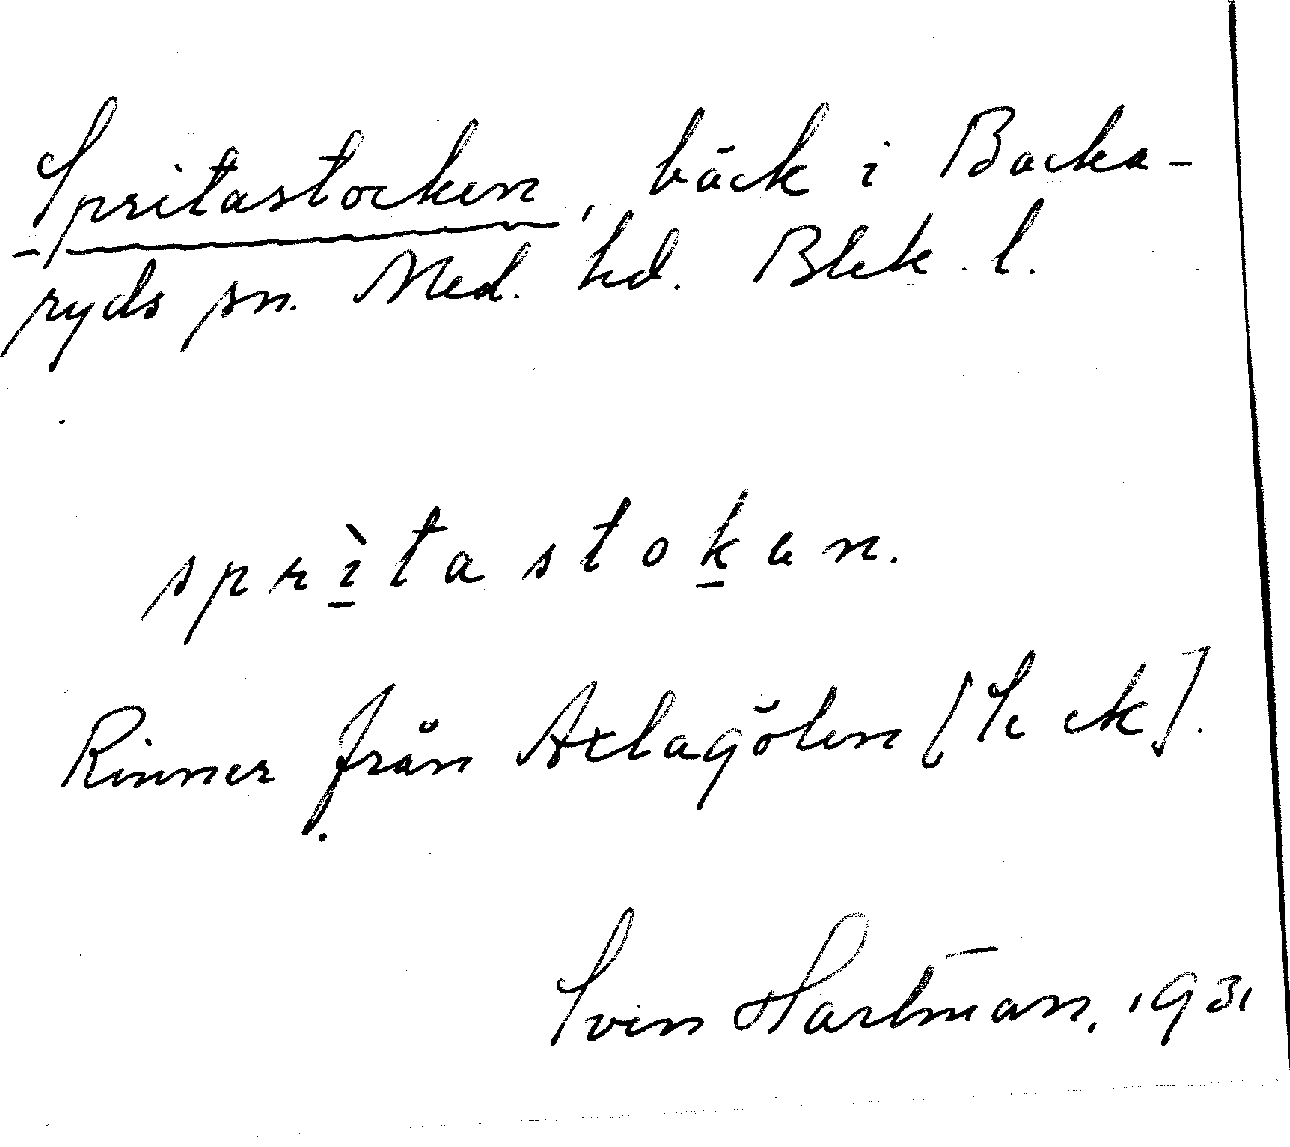 Spritastocken, bäck i Backa-
ryds sn. Med. hd. Blek. l.
sprìtastokan.
Rinner från Axlagölen [Se ek].
Sven Hartman, 1931